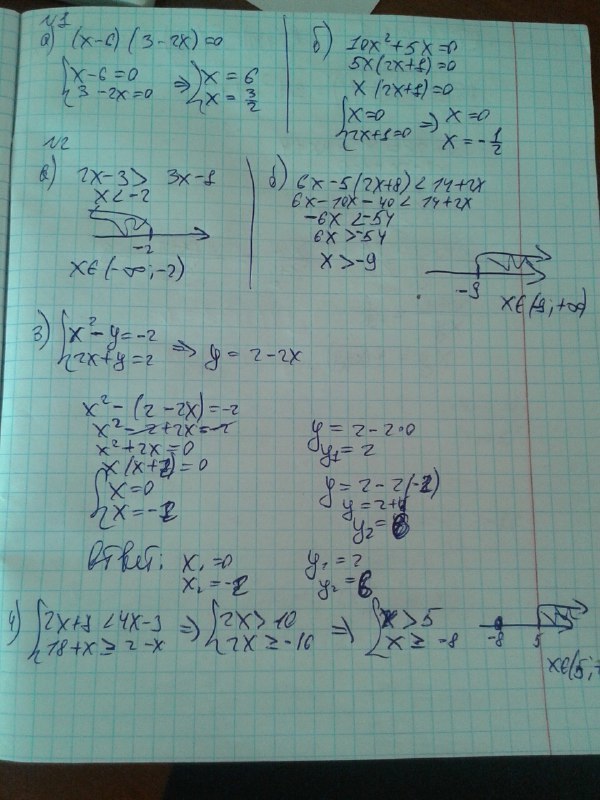 N1
а) (x-6)(3-2x)=0
{x-6=0 ⇒ {x=6
{3-2x=0 {x=3/2
б) 10x²+5x=0
5x(2x+1)=0
x(2x+1)=0
{x=0 ⇒ x=0
{2x+1=0 x=-1/2
N2
а) 2x-3> 3x-1
x<-2
-2
x∈(-∞;-2)
б) 6x-5(2x+8)<14+2x
6x-10x-40<14+2x
-6x<54
6x>-54
x>-9
-9
x∈(-9;+∞)
3) {x²-y=-2
{2x+y=2 ⇒ y=2-2x
x²-(2-2x)=-2
x²-2+2x=-2
x²+2x=0
x(x+2)=0
{x=0
{x=-2
y=2-2·0
y₁=2
y=2-2(-2)
y=2+4
y₂=6
Ответ: x₁=0 y₁=2
x₂=-2 y₂=6
4) {2x+1<4x-9 ⇒ {2x>10 ⇒ {x>5
{18+x≥2-x {2x≥-16 {x≥-8
-8 5
x∈(5;+